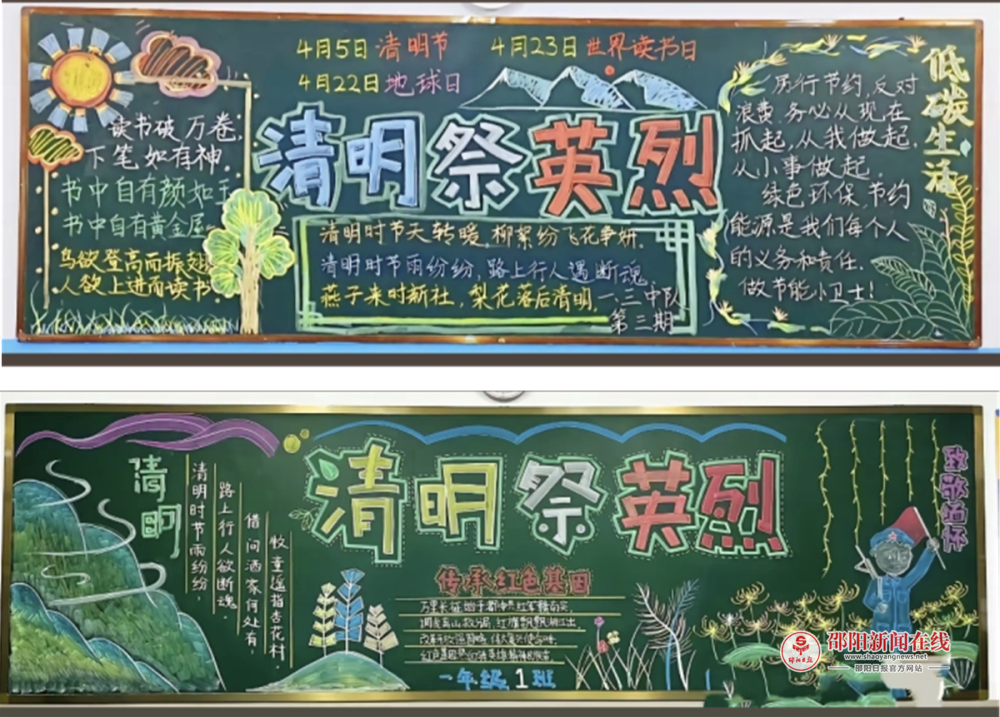 4月5日 清明节
4月23日 世界读书日
4月22日 地球日
清明祭英烈
读书破万卷,
下笔如有神.
书中自有颜如玉
书中自有黄金屋
鸟欲登高而振翅
人欲上进而读书.
清明时节天转暖,柳絮纷飞花争妍.
清明时节雨纷纷,路上行人遇断魂
燕子来时新社,梨花落后清明.
一.三中队
第三期
低碳生活
厉行节约,反对
浪费.务必从现在
抓起,从我做起.
从小事做起.
绿色环保,节约
能源.是我们每个人
的义务和责任.
做节能小卫士!
清明
清明时节雨纷纷,
路上行人欲断魂.
借问酒家何处有,
牧童遥指杏花村,
清明祭英烈
传承红色基因
一年级1班
致敬缅怀
邵阳新闻在线
www.shaoyangnews.net
邵阳日报官方网站
邵阳日报